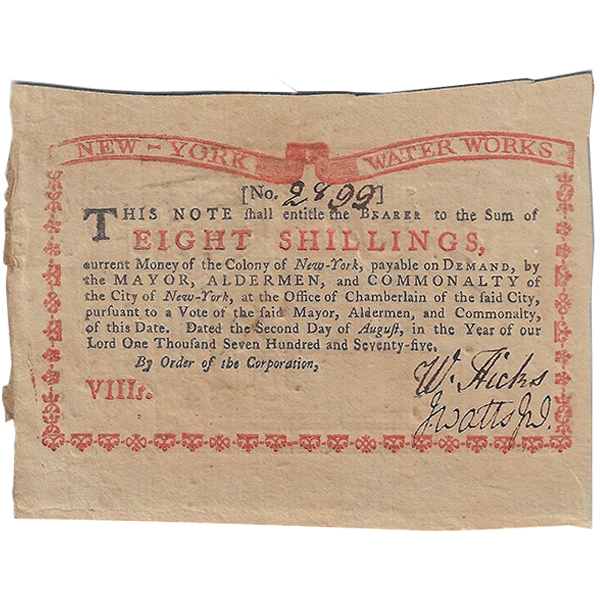 NEW-YORK WATER WORKS
[No. 2899]
THIS NOTE ſhall entitle the BEARER to the Sum of
EIGHT SHILLINGS,
current Money of the Colony of New-York, payable on DEMAND, by
the MAYOR, ALDERMEN, and COMMONALTY of
the City of New-York, at the Office of Chamberlain of the ſaid City,
purſuant to a Vote of the ſaid Mayor, Aldermen, and Commonalty,
of this Date. Dated the Second Day of Auguſt, in the Year of our
Lord One Thouſand Seven Hundred and Seventy-five.
By Order of the Corporation,
VIIIs.
W. Hicks
J. Watts Jr.